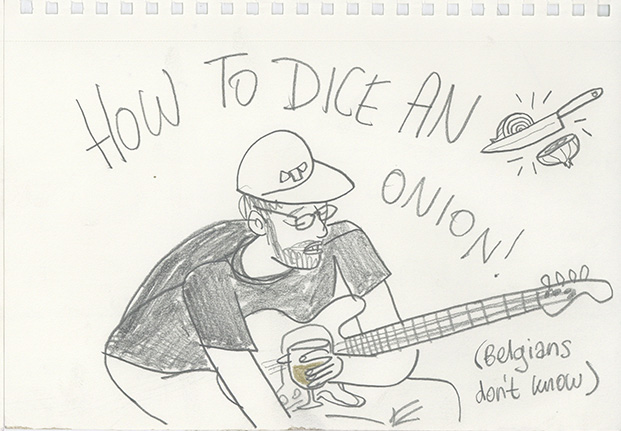 HOW TO DICE AN
ONION!
(Belgians
don't know)